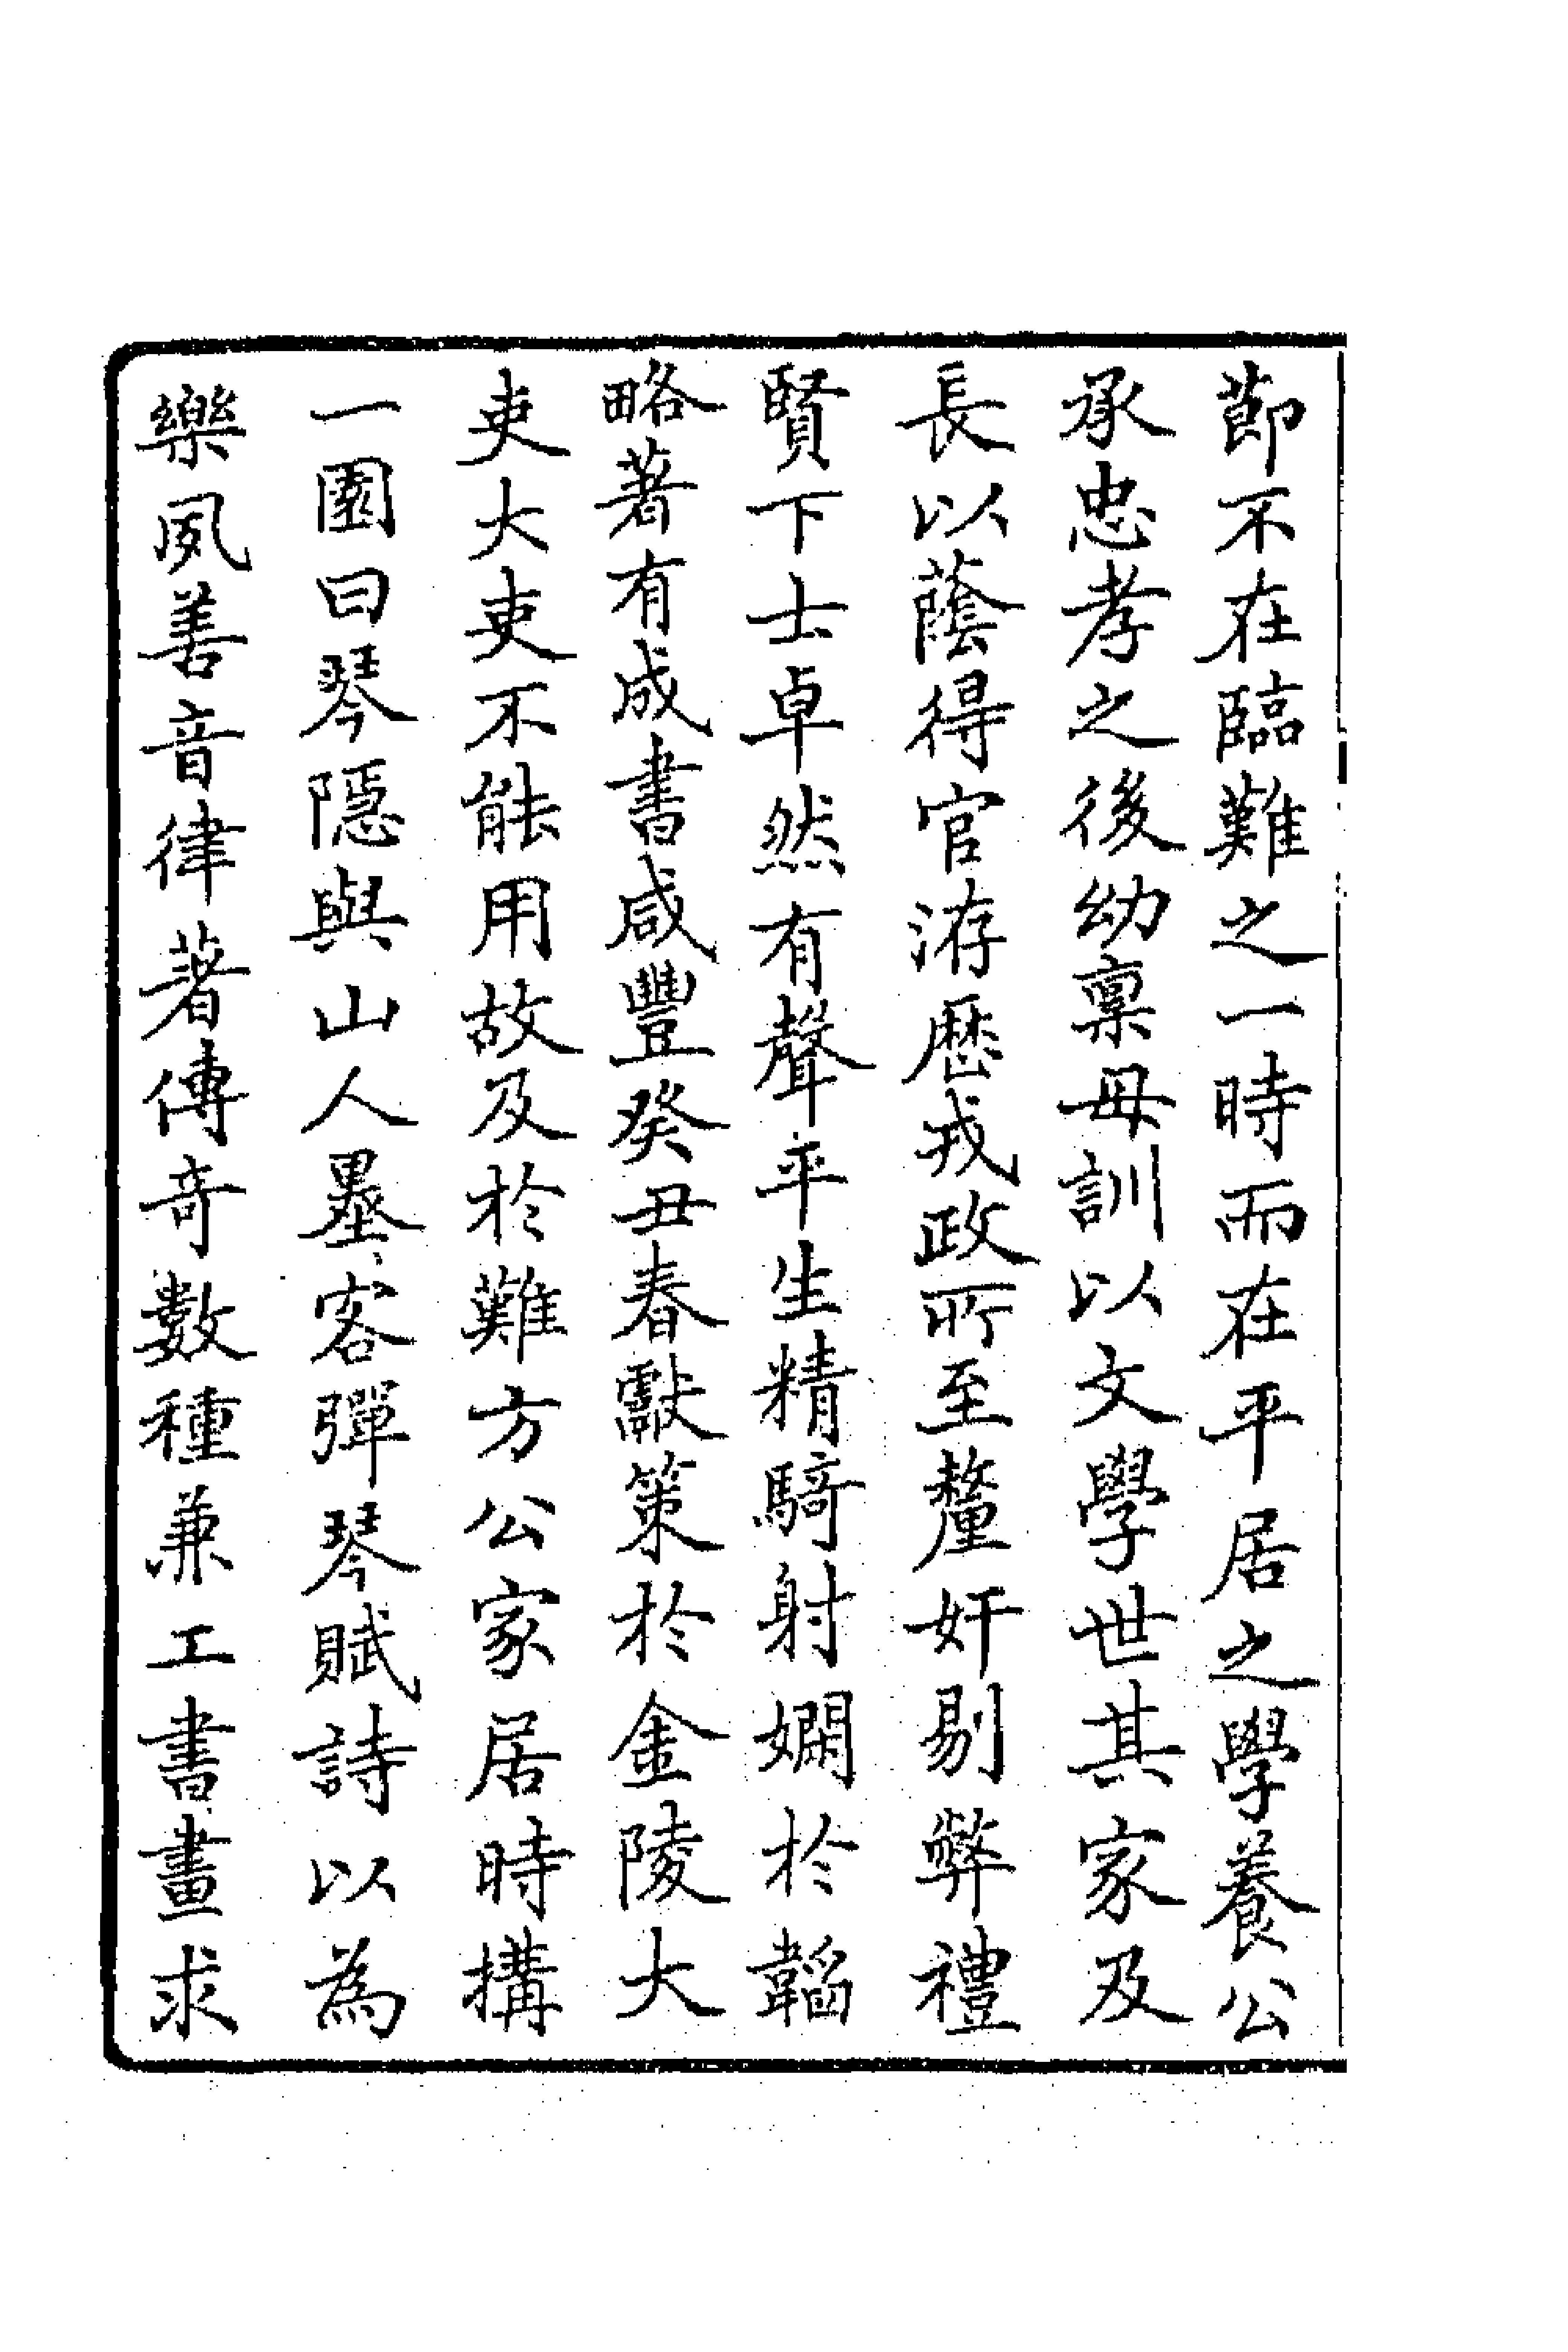 節不在臨難之一時而在平居之學養公
承忠孝之後幼禀母訓以文學世其家及
長以蔭得官洊歷戎政所至釐奸剔弊禮
賢下士卓然有聲平生精騎射嫻於韜
略著有成書咸豐癸丑春獻策於金陵大
吏大吏不能用故及於難方公家居時搆
一園曰琴隱與山人墨客彈琴賦詩以為
樂夙善音律著傳奇數種兼工書畫求